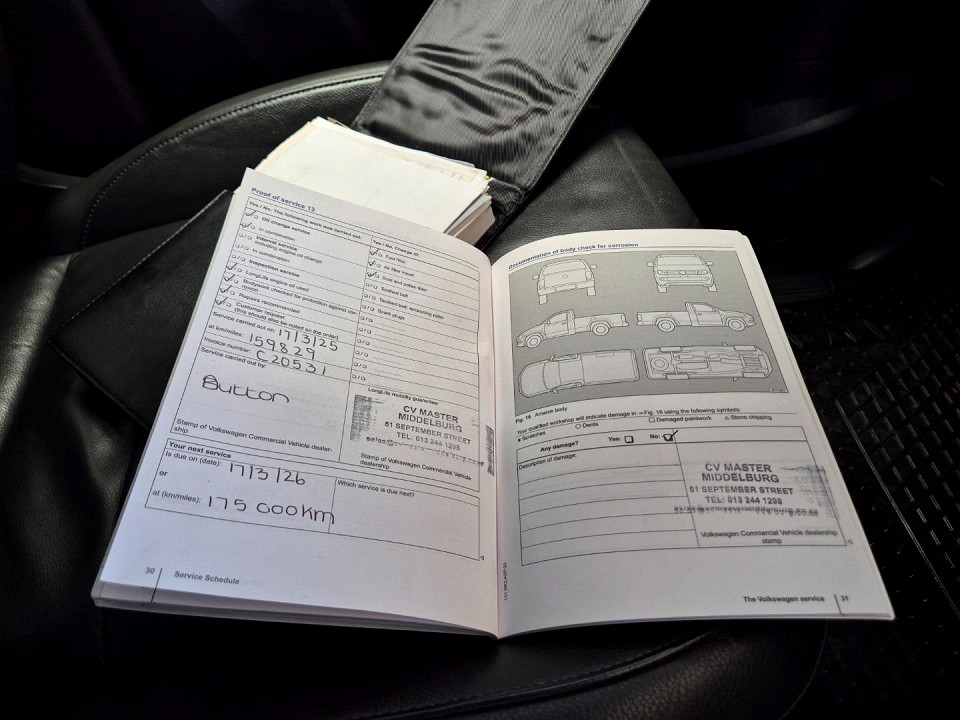 Proof of service 13
Yes / No. The following work was carried out:
Oil change service
In combination
Interval service
including engine oil change
In combination
Inspection service
LongLife engine oil used
Bodywork checked for protection against corrosion
Repairs recommended
Customer request
(this should also be noted on the order)
Service carried out on: 17/3/25
at km/miles: 159829
Invoice number: C20531
Service carried out by:
Button
Stamp of Volkswagen Commercial Vehicle dealer-
ship
Yes / No. Change of:
Fuel filter
Air filter insert
Dust and pollen filter
Toothed belt
Toothed belt tensioning roller
Spark plugs
LongLife mobility guarantee:
CV MASTER
MIDDELBURG
51 SEPTEMBER STREET
TEL: 013 244 1298
Stamp of Volkswagen Commercial Vehicle
dealership
Your next service
is due on (date): 17/3/26
or
at (km/miles): 175 000km
Which service is due next?
30 Service Schedule
Documentation of body check for corrosion
Fig. 16 Amarok body
Your qualified workshop will indicate damage in ⇒ Fig. 16 using the following symbols:
x Scratches ○ Dents □ Damaged paintwork △ Stone chipping
Any damage? Yes: No:
Description of damage:
CV MASTER
MIDDELBURG
51 SEPTEMBER STREET
TEL: 013 244 1298
Volkswagen Commercial Vehicle dealership
stamp
The Volkswagen service 31